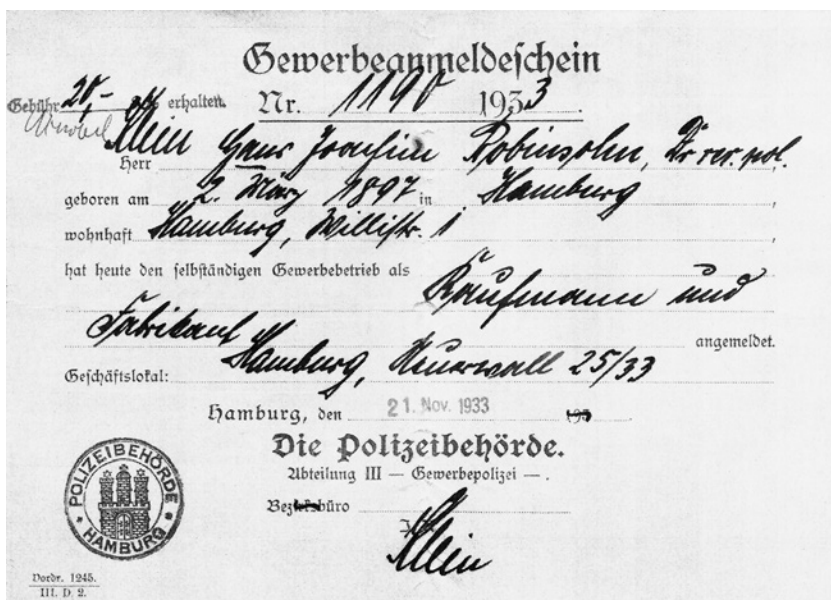 Gewerbeanmeldeschein
Gebühr 20,- erhalten. Nr. 1190 1933.
Klein
Herr Hans Joachim Robinsohn, Dr rer. pol.
geboren am 2. März 1897 in Hamburg,
wohnhaft Hamburg, Willistr. 1,
hat heute den selbständigen Gewerbebetrieb als Kaufmann und
Fabrikant angemeldet.
Geschäftslokal: Hamburg, Neuerwall 25/33
Hamburg, den 21. Nov. 1933 193
Die Polizeibehörde.
Abteilung III — Gewerbepolizei —.
Bezirksbüro
Klein
POLIZEIBEHÖRDE
HAMBURG
Vordr. 1245.
III. D. 2.